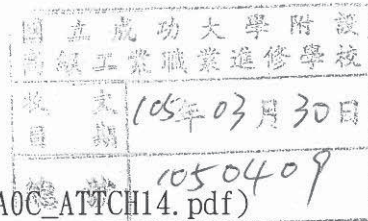 國立成功大學附設
高級工業職業進修學校
收文
日期
105年03月30日
號
1050409
A0C_ATTCH14.pdf)